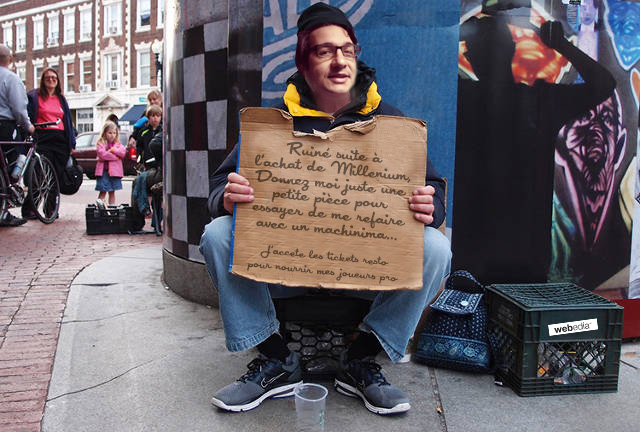 Ruiné suite à
l'achat de Millenium,
Donnez moi juste une
petite pièce pour
essayer de me refaire
avec un machinima...
J'accete les tickets resto
pour nourrir mes joueurs pro
webedia